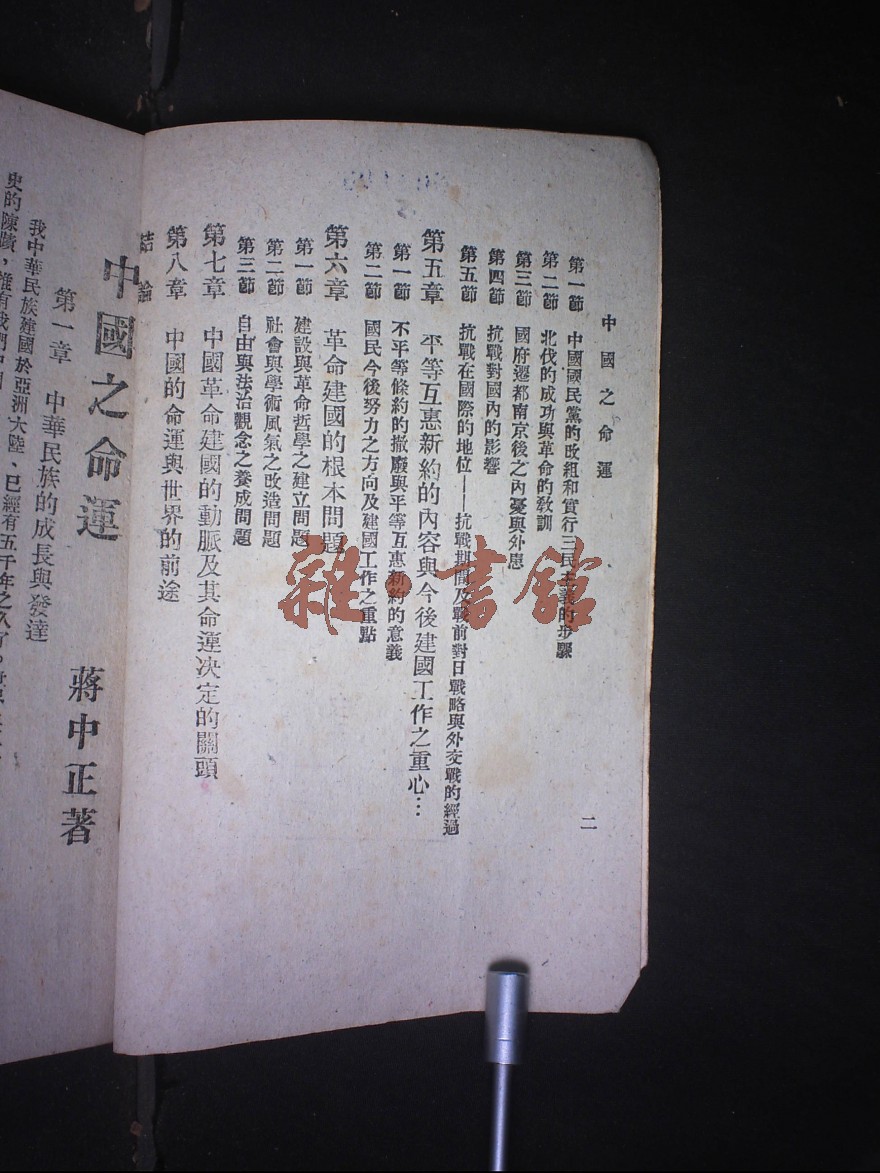 中國之命運
二
第一節 中國國民黨的改組和實行三民主義的步驟
第二節 北伐的成功與革命的教訓
第三節 國府遷都南京後之內憂與外患
第四節 抗戰對國內的影響
第五節 抗戰在國際的地位——抗戰期間及戰前對日戰略與外交戰的經過
第五章 平等互惠新約的內容與今後建國工作之重心…
第一節 不平等條約的撤廢與平等互惠新約的意義
第二節 國民今後努力之方向及建國工作之重點
第六章 革命建國的根本問題
第一節 建設與革命哲學之建立問題
第二節 社會與學術風氣之改造問題
第三節 自由與法治觀念之養成問題
第七章 中國革命建國的動脈及其命運決定的關頭
第八章 中國的命運與世界的前途
結論
中國之命運
蔣中正著
第一章 中華民族的成長與發達
我中華民族建國於亞洲大陸、已經有五千年之久了。
史的陳蹟，惟有我們中國
雜·書館